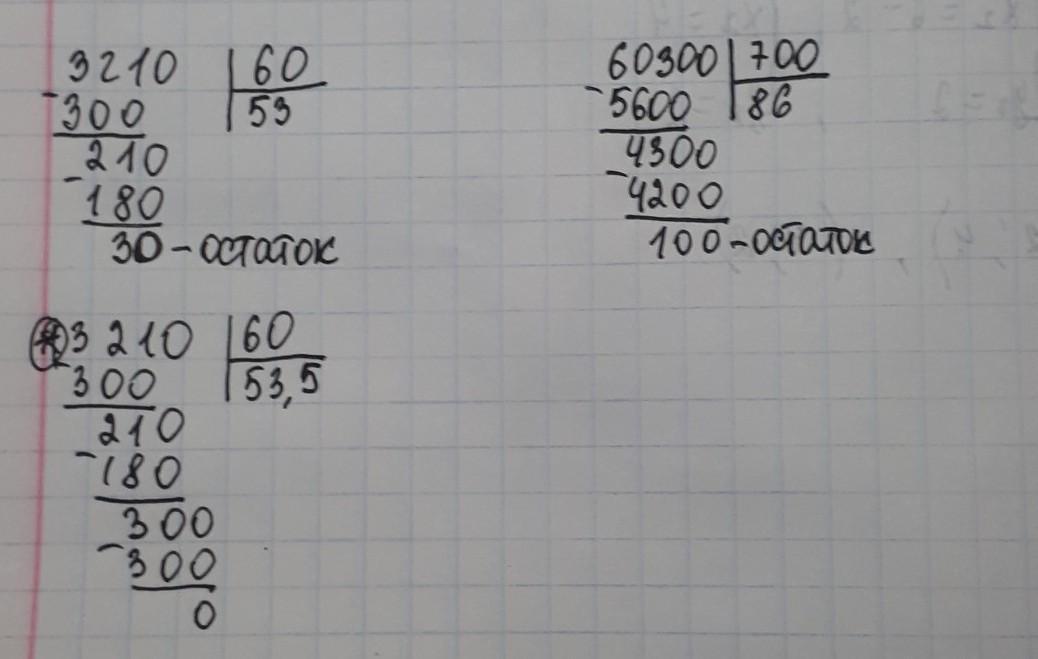 3210 60
-300 53
-210
180
30 - остаток
60300 700
-5600 86
4300
-4200
100 - остаток
3210 60
300 53,5
210
-180
300
-300
0